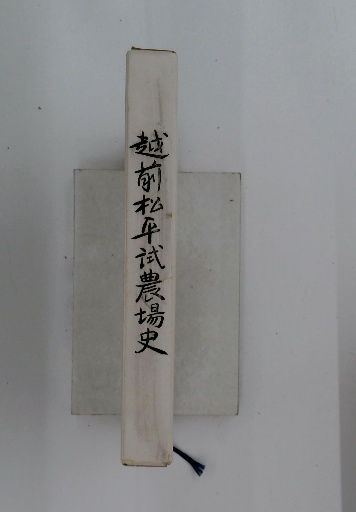 越前松平試農場史